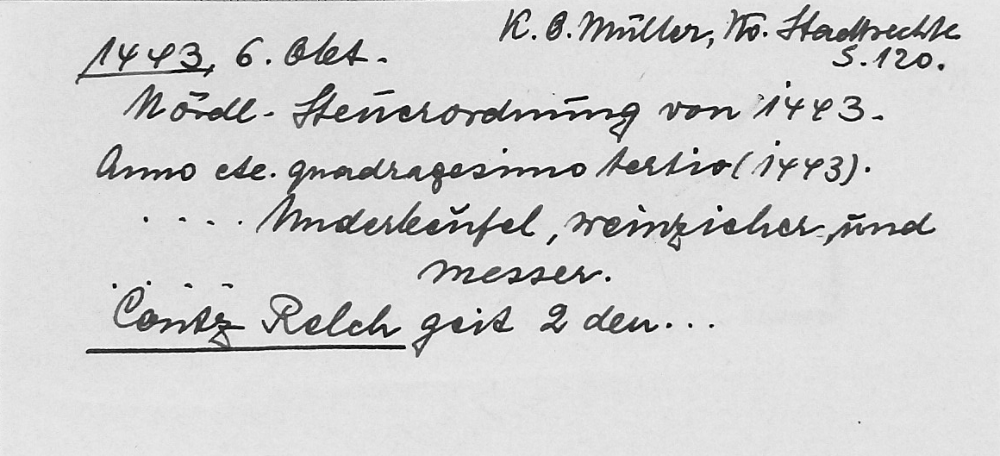 K. O. Müller, Nö. Stadtrechte
S. 120.
1443, 6. Okt.
Nördl. Steuerordnung von 1443.
Anno etc. quadragesimo tertio (1443).
.... Underkeüfel, weinzieher, und
messer.
....
Contz Relch geit 2 den...